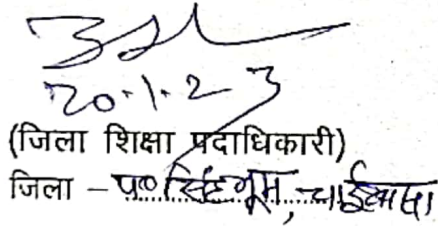 20.1.23
(जिला शिक्षा पदाधिकारी)
जिला – प० सिंहभूम, चाईबासा